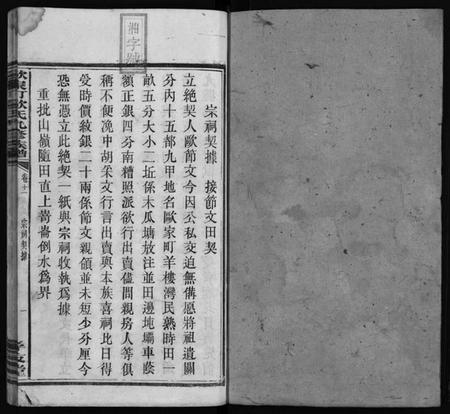 湘字號
宗祠契據　接節文田契
立絶契人歐節文今因公私交迫無偹愿將祖遺關
分内十五都九甲地名歐家町羊樓灣民熟時田一
畝五分大小二坵係木瓜塘放注並田邊地壩車蔭
額正銀四分南糟照派欲行出賣儘問親房人等俱
稱不便凂中胡朱文行言出賣與本族喜祠比日得
受時價紋銀二十兩係節文親領並未短少分厘今
恐無憑立此絶契一紙與宗祠收執爲據
重批山嶺隨田直上崙嵜倒水爲界
歐氏九修族譜
卷十一
宗祠契據
一